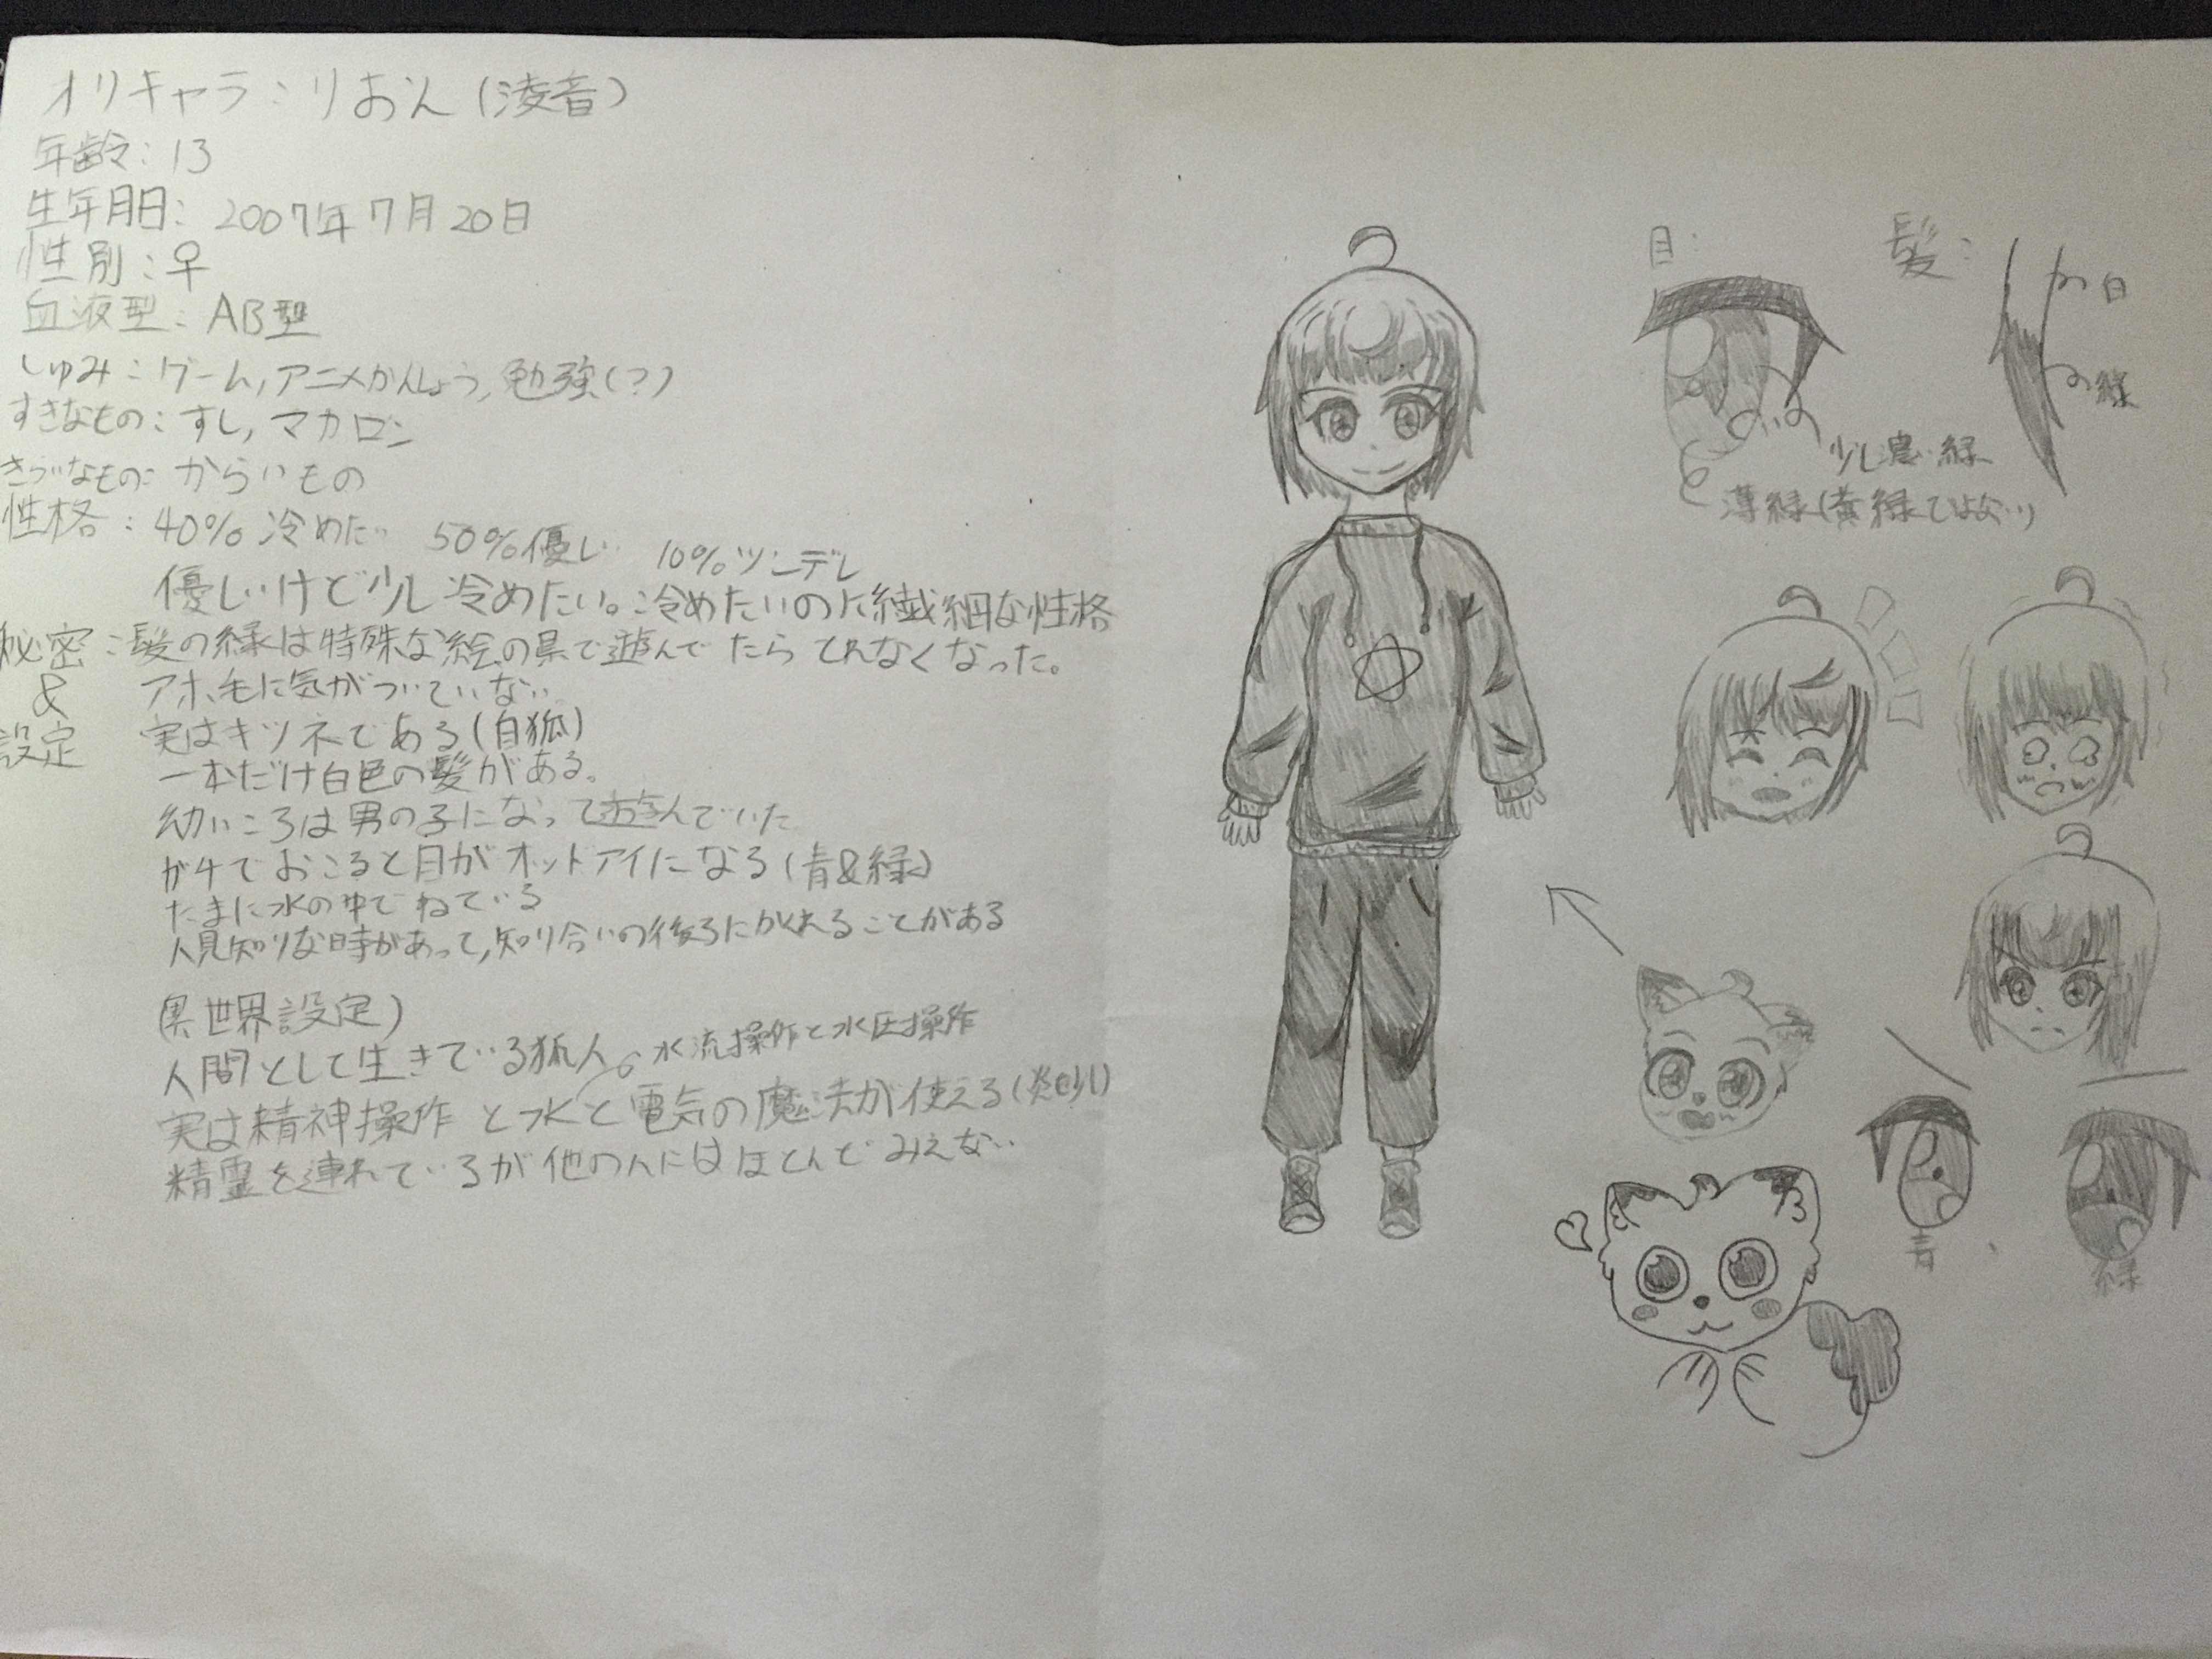 オリキャラ:りおん(凌音)
年齢:13
生年月日:2007年7月20日
性別:♀
血液型:AB型
しゅみ:ゲーム,アニメかんしょう,勉強(?)
すきなもの:すし,マカロン
きらいなもの:からいもの
性格:40%冷めたい 50%優しい 10%ツンデレ
優しいけど少し冷めたい。冷めたいのに繊細な性格
秘密&設定:髪の緑は特殊な絵の具で遊んでたらとれなくなった。
アホ毛に気がついていない
実はキツネである(白狐)
一本だけ白色の髪がある。
幼いころは男の子になって遊んでいた
ガチでおこると目がオットアイになる(青&緑)
たまに水の中でねている
人見知りな時があって,知り合いの後ろにかくれることがある
(異世界設定)
人間として生きている狐人
水流操作と水圧操作
実は精神操作と水と電気の魔法が使える(炎も少し)
精霊を連れているが他の人にはほとんどみえない
目:
少し濃い緑
薄緑(黄緑ではない)
髪:
白
緑
青
緑